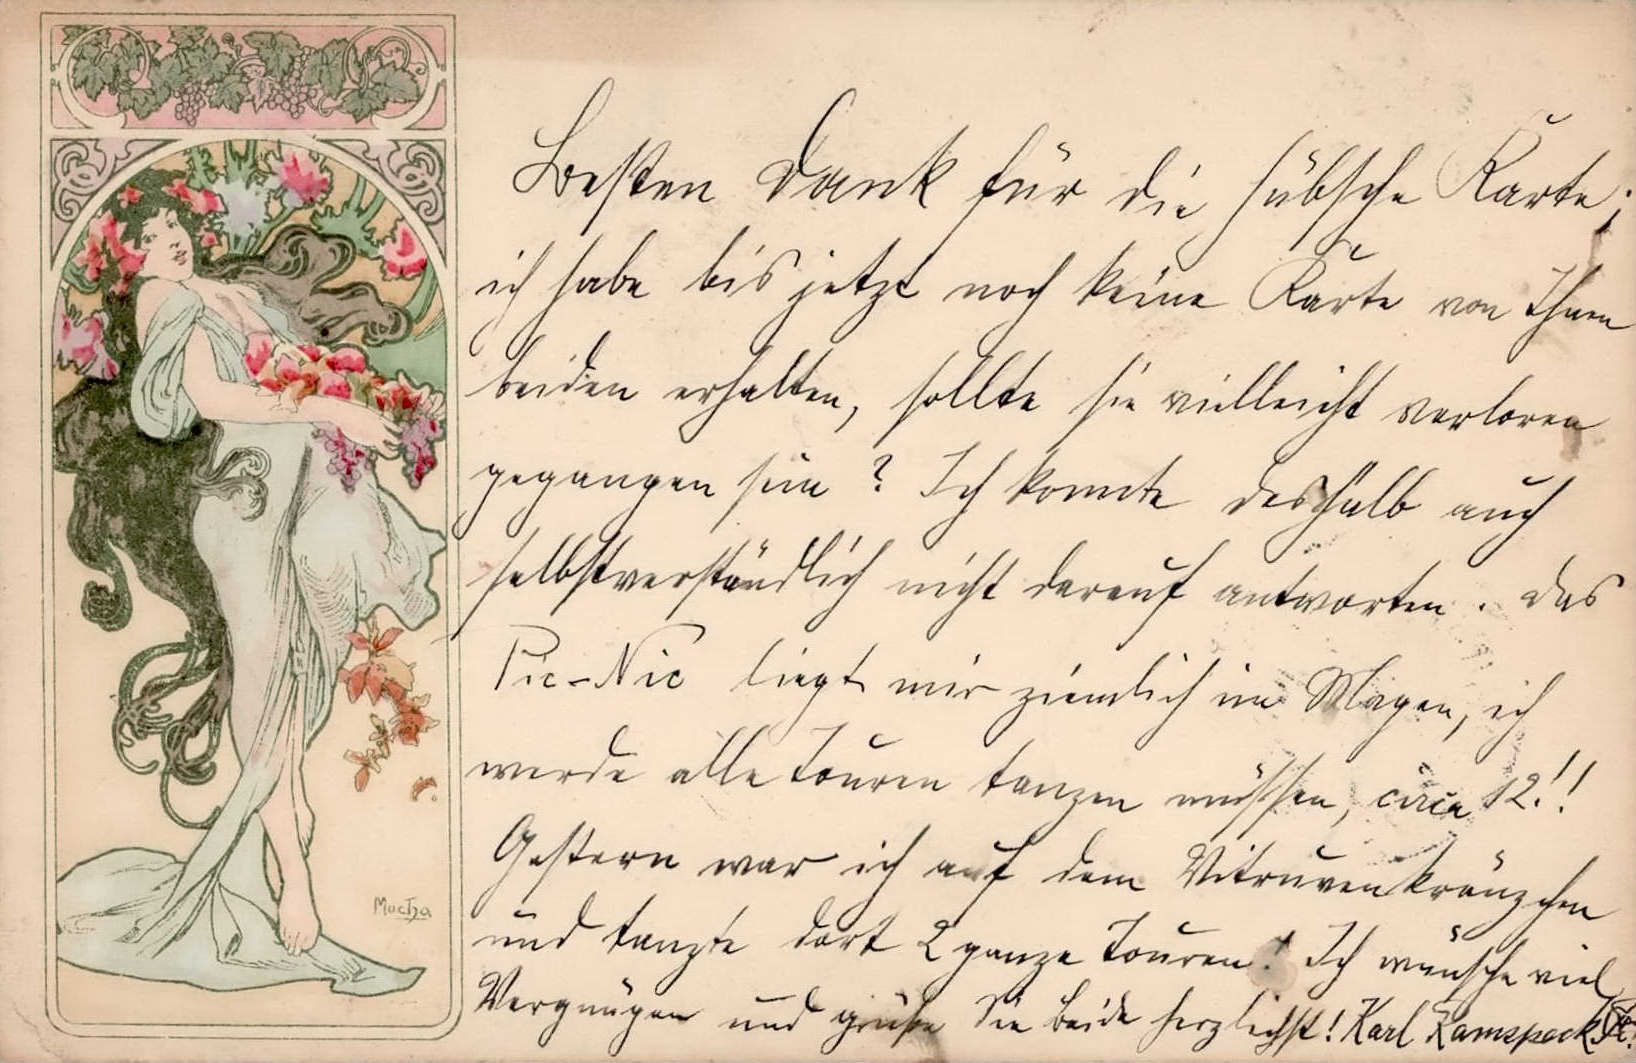 Mucha
Besten Dank für die hübsche Karte;
ich habe bis jetzt noch keine Karte von Ihnen
beiden erhalten, sollte sie vielleicht verloren
gegangen sein? Ich konnte deshalb auch
selbstverständlich nicht darauf antworten. Das
Pic-Nic liegt mir ziemlich im Magen, ich
werde alle Touren tanzen müssen, circa 12!!
Gestern war ich auf dem Vitruvenkränzchen
und tanzte dort 2 ganze Touren! Ich wünsche viel
Vergnügen und grüße Sie beide herzlichst! Karl Ramspeck